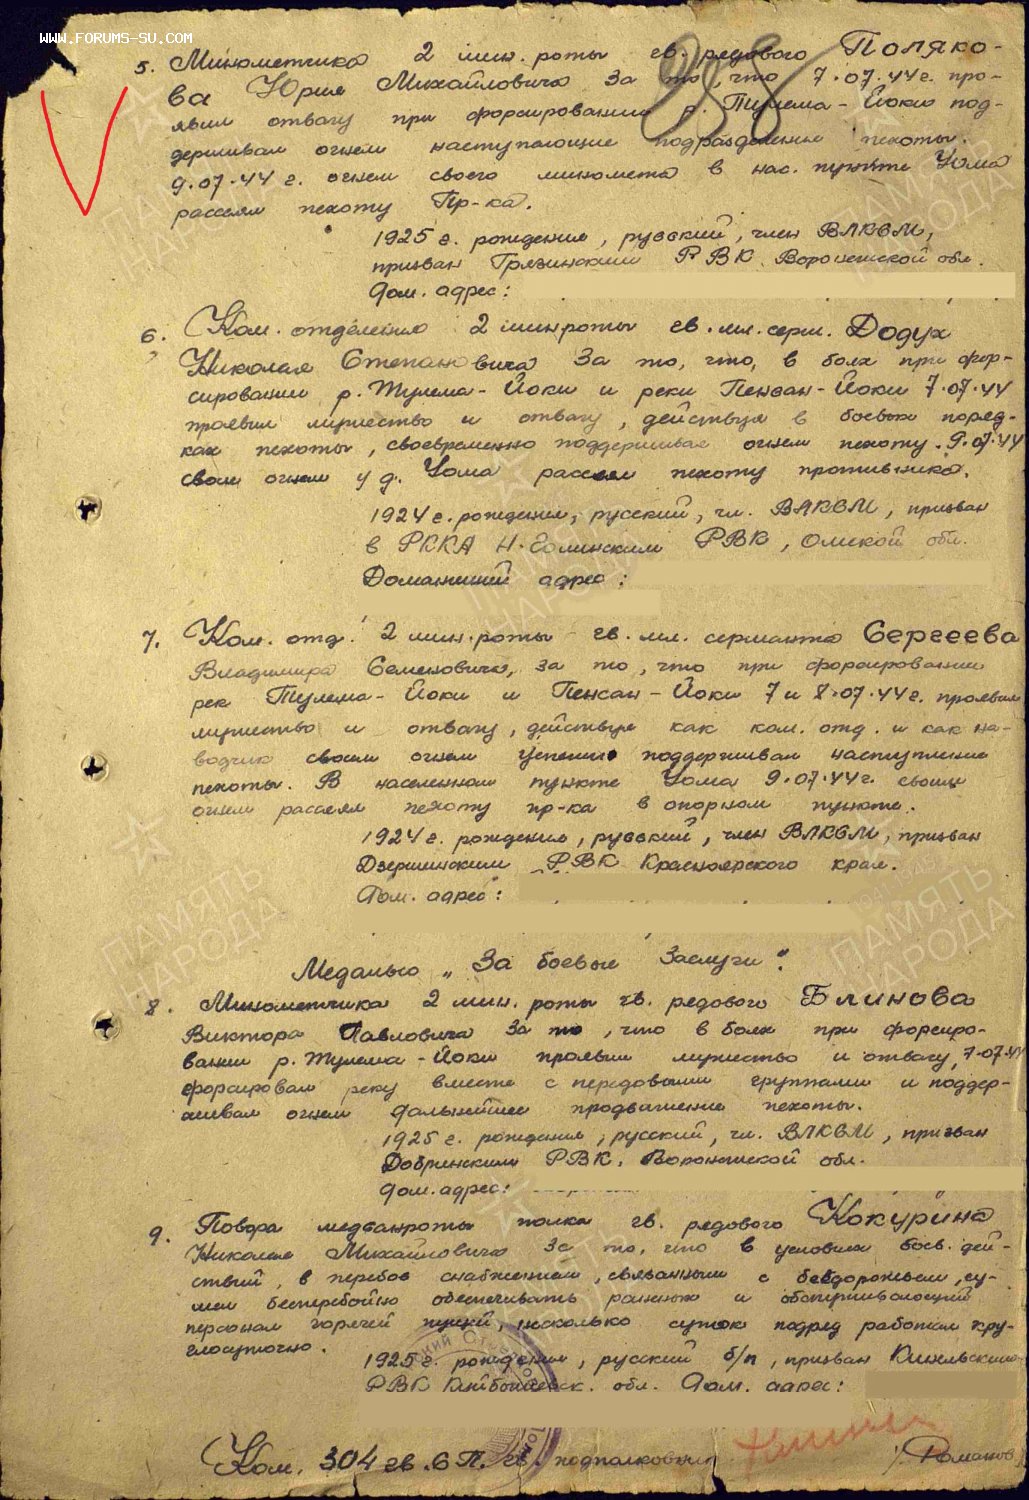 WWW.FORUMS-SU.COM
5. Минометчика 2 мин. роты гв. рядового Поляко-
ва Юрия Михайловича За то, что 7.07.44 г. про-
явил отвагу при форсировании р. Тулема-Йоки под-
держивал огнем наступающие подразделения пехоты.
9.07.44 г. огнем своего миномета в нас. пункте Уома
рассеял пехоту Пр-ка.
1925 г. рождения, русский, член ВЛКСМ,
призван Грязинским РВК Воронежской обл.
Дом. адрес:
6. Ком. отделения 2 минроты гв. мл. серж. Додух
Николая Степановича За то, что, в боях при фор-
сировании р. Тулема-Йоки и реки Пенсан-Йоки 7.07.44
проявил мужество и отвагу, действуя в боевых поряд-
ках пехоты, своевременно поддерживая огнем пехоту. 9.07.44
свои огнем у д. Уома рассеял пехоту противника.
1924 г. рождения, русский, чл. ВЛКСМ, призван
в РККА РВК, Омской обл.
Домашний адрес:
7. Ком. отд. 2 мин. роты гв. мл. сержанта Сергеева
Владимира Семеновича, за то, что при форсировании
рек Тулема-Йоки и Пенсан-Йоки 7 и 8.07.44 г. проявил
мужество и отвагу, действуя как ком. отд. и как на-
водчик своим огнем успешно поддерживал наступление
пехоты. В населенном пункте Уома 9.07.44 г. своим
огнем рассеял пехоту пр-ка в опорном пункте.
1924 г. рождения, русский, член ВЛКСМ, призван
Дзержинским РВК Красноярского края.
Дом. адрес:
Медалью „За боевые заслуги".
8. Минометчика 2 мин. роты гв. рядового Блинова
Виктора Павловича За то, что в боях при форсиро-
вании р. Тулема-Йоки проявил мужество и отвагу, 7.07.44
форсировал реку вместе с передовыми группами и поддер-
живал огнем дальнейшее продвижение пехоты.
1925 г. рождения, русский, чл. ВЛКСМ, призван
Добринским РВК, Воронежской обл.
Дом. адрес:
9. Повара медсанроты полка гв. рядового Кокурина
Николая Михайловича За то, что в условиях боев. дей-
ствий, в перебоя снабжением, связанным с бездорожьем, су-
мел бесперебойно обеспечивать раненых и обслуживающий
персонал горячей пищей, несколько суток подряд работал кру-
глосуточно.
1925 г. рождения, русский б/п, призван Кинельским
РВК Куйбышевск. обл. Дом. адрес:
Ком. 304 гв. С П. гв. подполковник /Романов/
ПАМЯТЬ
НАРОДА